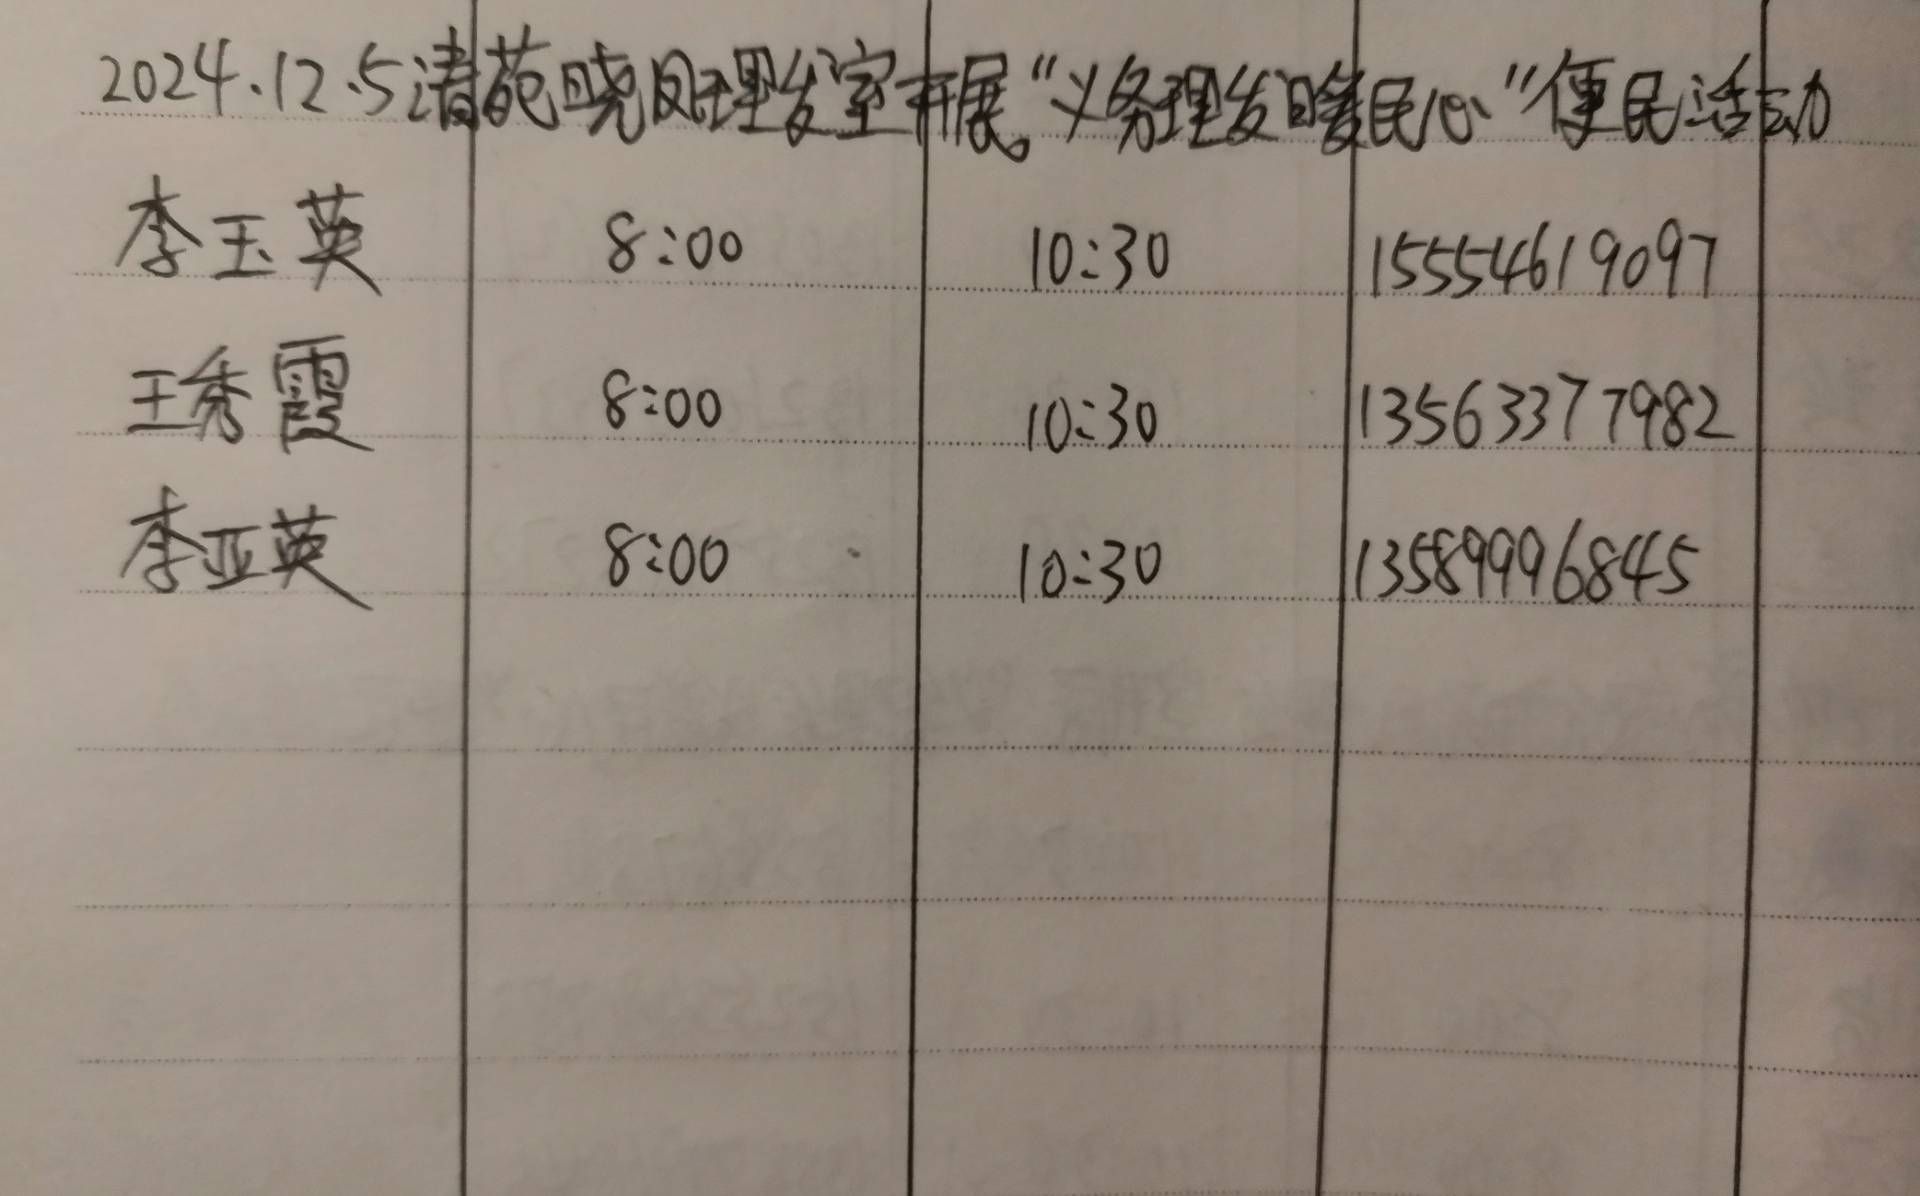 2024.12.5渚苑晓凤理发室开展“义务理发暖民心”便民活动
李玉英 8:00 10:30 15554619097
王秀霞 8:00 10:30 13563377982
李亚英 8:00 10:30 13589996845